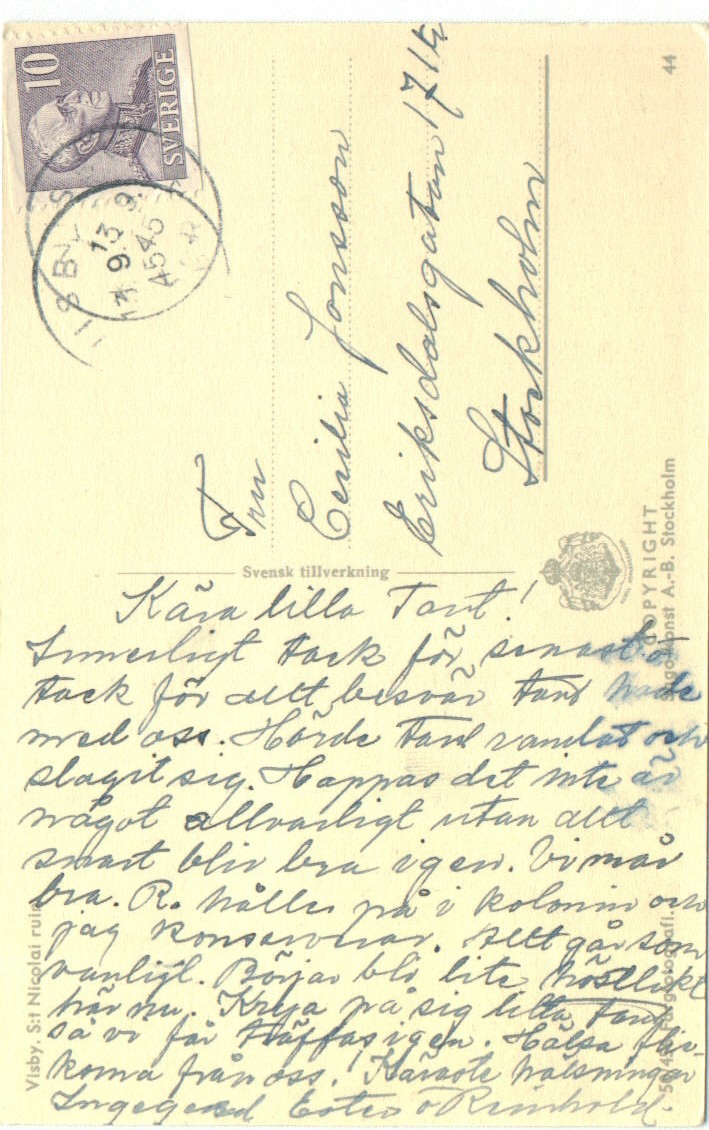 10
SVERIGE
VISBY
13 9.
9.45
45
44
Fru
Cecilia Jonsson
Eriksdalsgatan 17
Stockholm
Svensk tillverkning
COPYRIGHT
Konst A.-B. Stockholm
Kära lilla Tant!
Innerligt tack för senast o
tack för allt besvär Tant hade
med oss. Hörde Tant ramlat och
slagit sig. Hoppas det inte är
något allvarligt utan allt
snart blir bra igen. Vi mår
bra. R. håller på i kolonin och
jag konserverar. Allt går som
vanligt. Börjar bli lite höstlikt
här nu. Krya på sig lilla Tant
så vi får träffas igen. Hälsa flic-
korna från oss! Käraste hälsningar
Ingegerd Ester o Reinhold.
Visby. S:t Nicolai ruin
Färgfotografi.